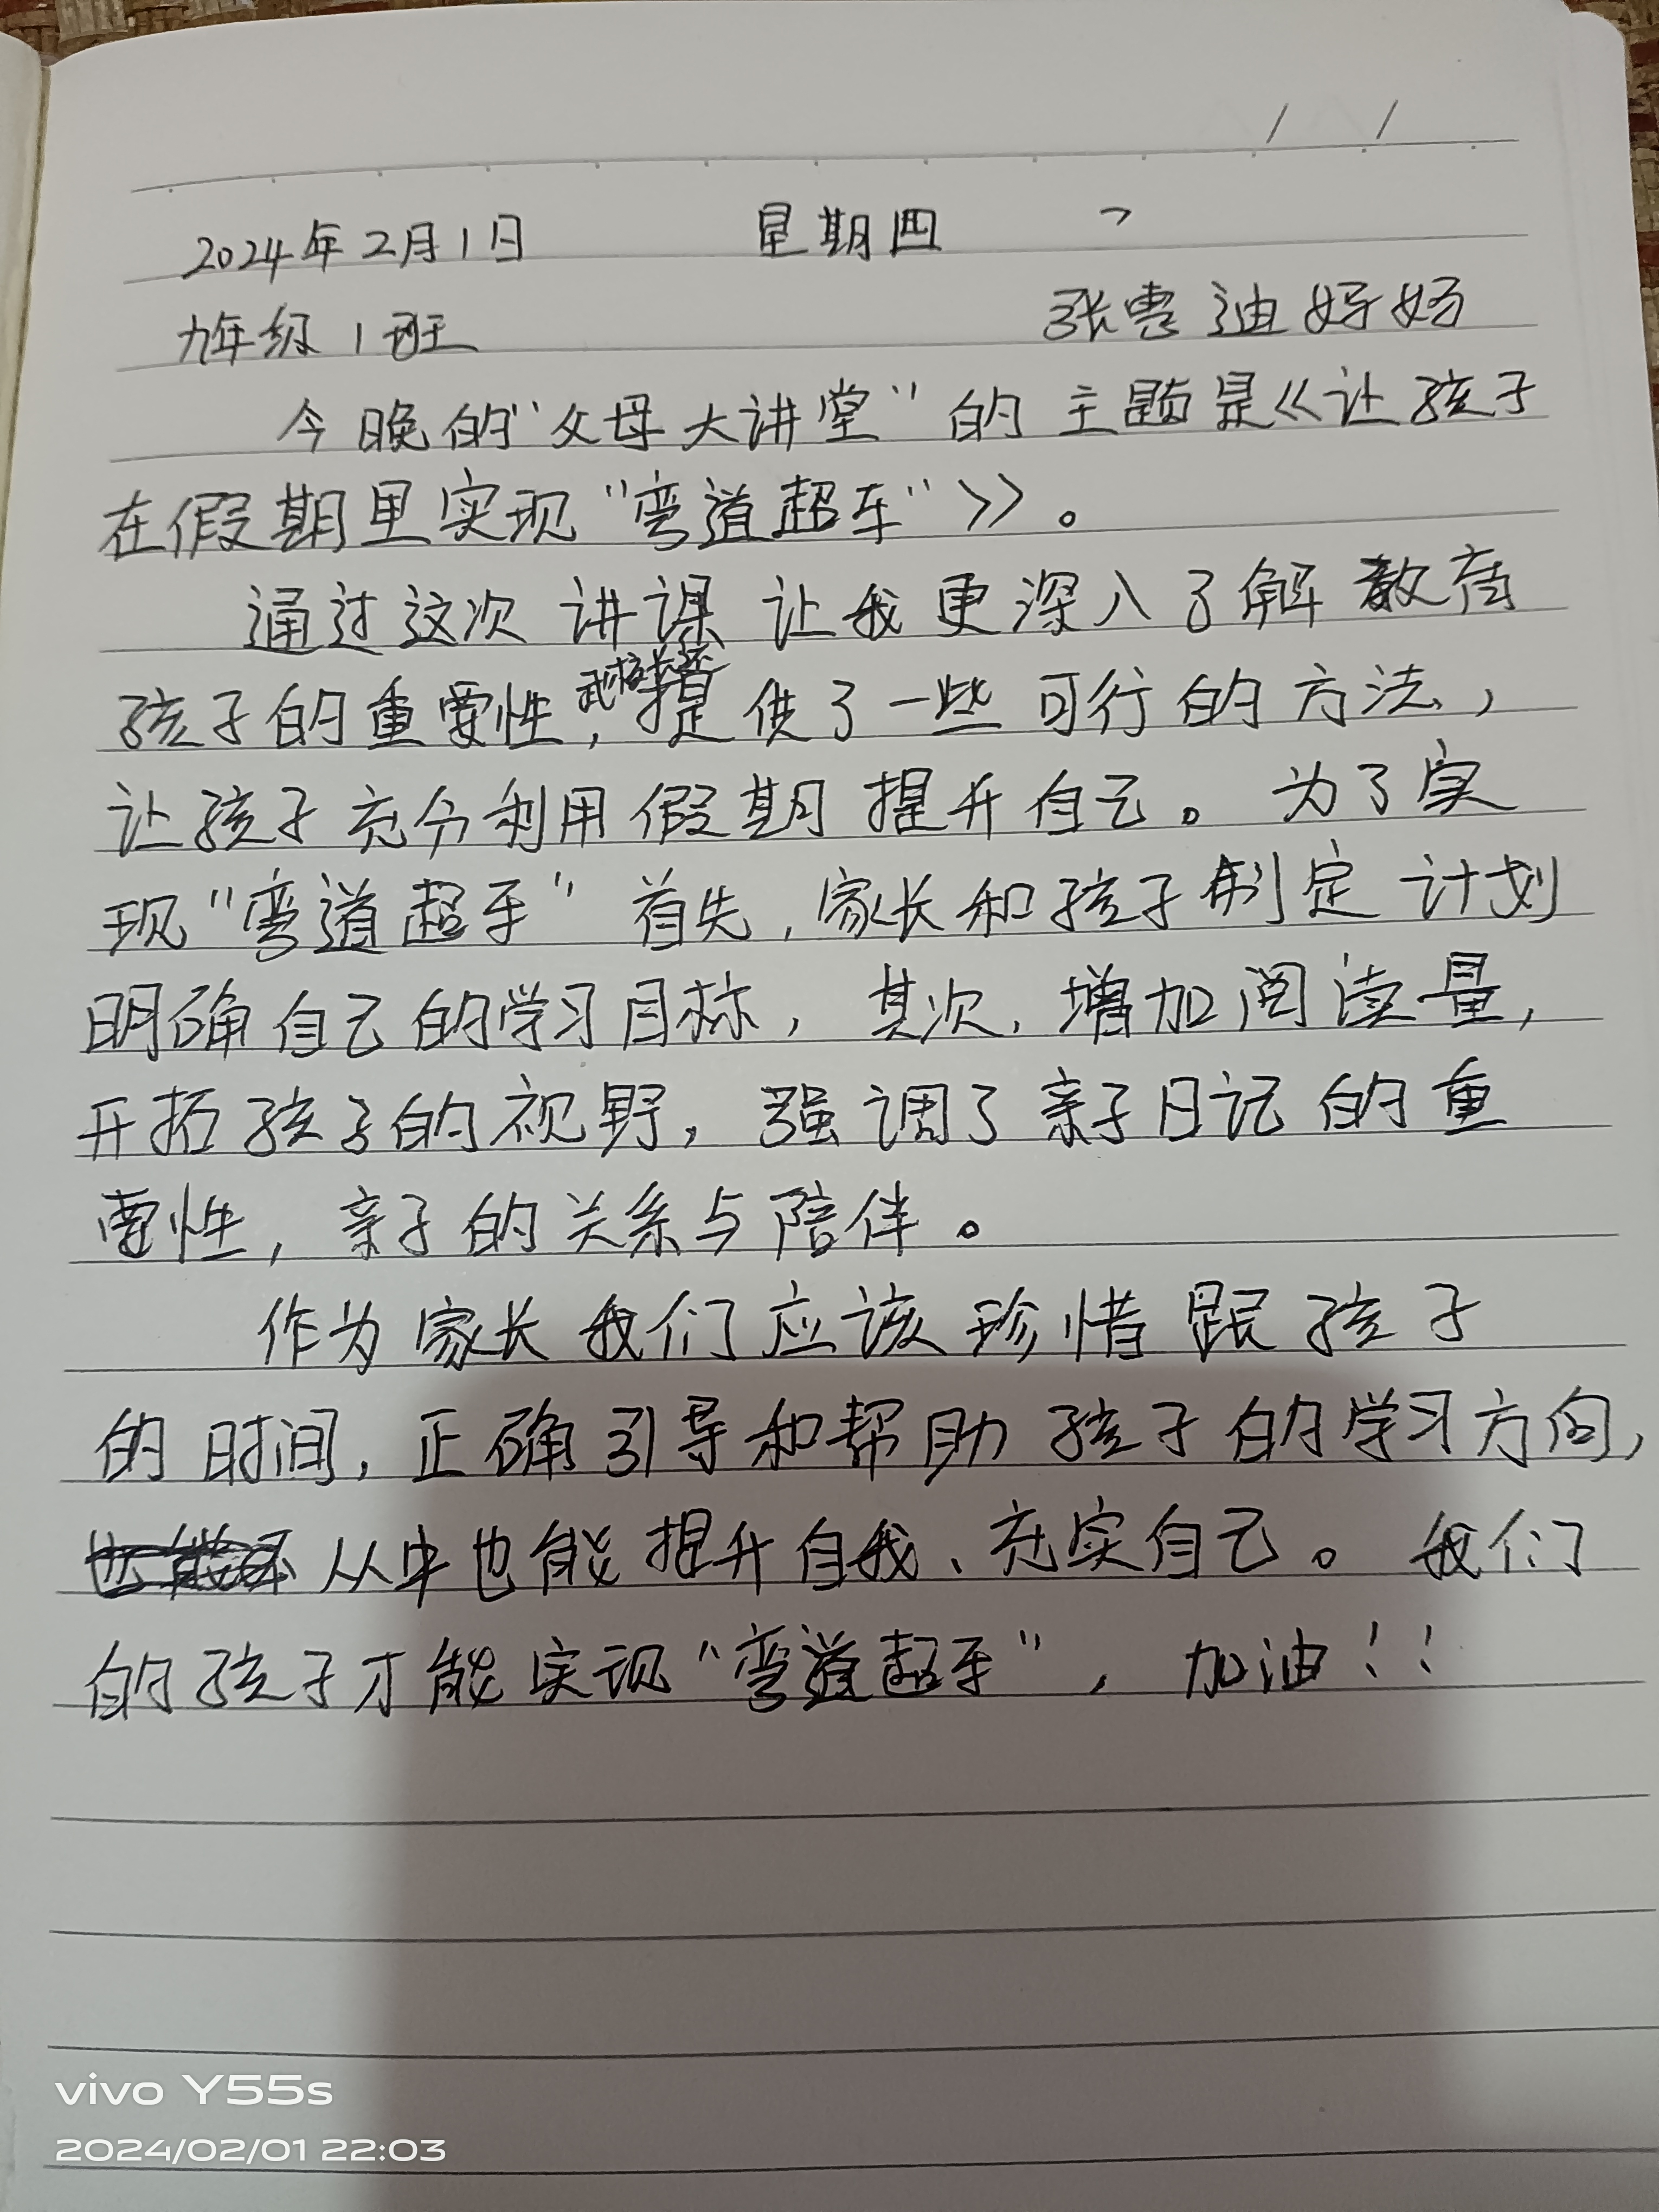 2024年2月1日 星期四
九年级1班 张惠迪妈妈
今晚的“父母大讲堂”的主题是《让孩子
在假期里实现“弯道超车”》。
通过这次讲课让我更深入了解教育
孩子的重要性,提供了一些可行的方法,
让孩子充分利用假期提升自己。为了实
现“弯道超车”首先,家长和孩子制定计划
明确自己的学习目标,其次,增加阅读量,
开拓孩子的视野,强调了亲子日记的重
要性,亲子的关系与陪伴。
作为家长我们应该珍惜跟孩子
的时间,正确引导和帮助孩子的学习方向,
从中也能提升自我、充实自己。我们
的孩子才能实现“弯道超车”,加油!!
vivo Y55s
2024/02/01 22:03